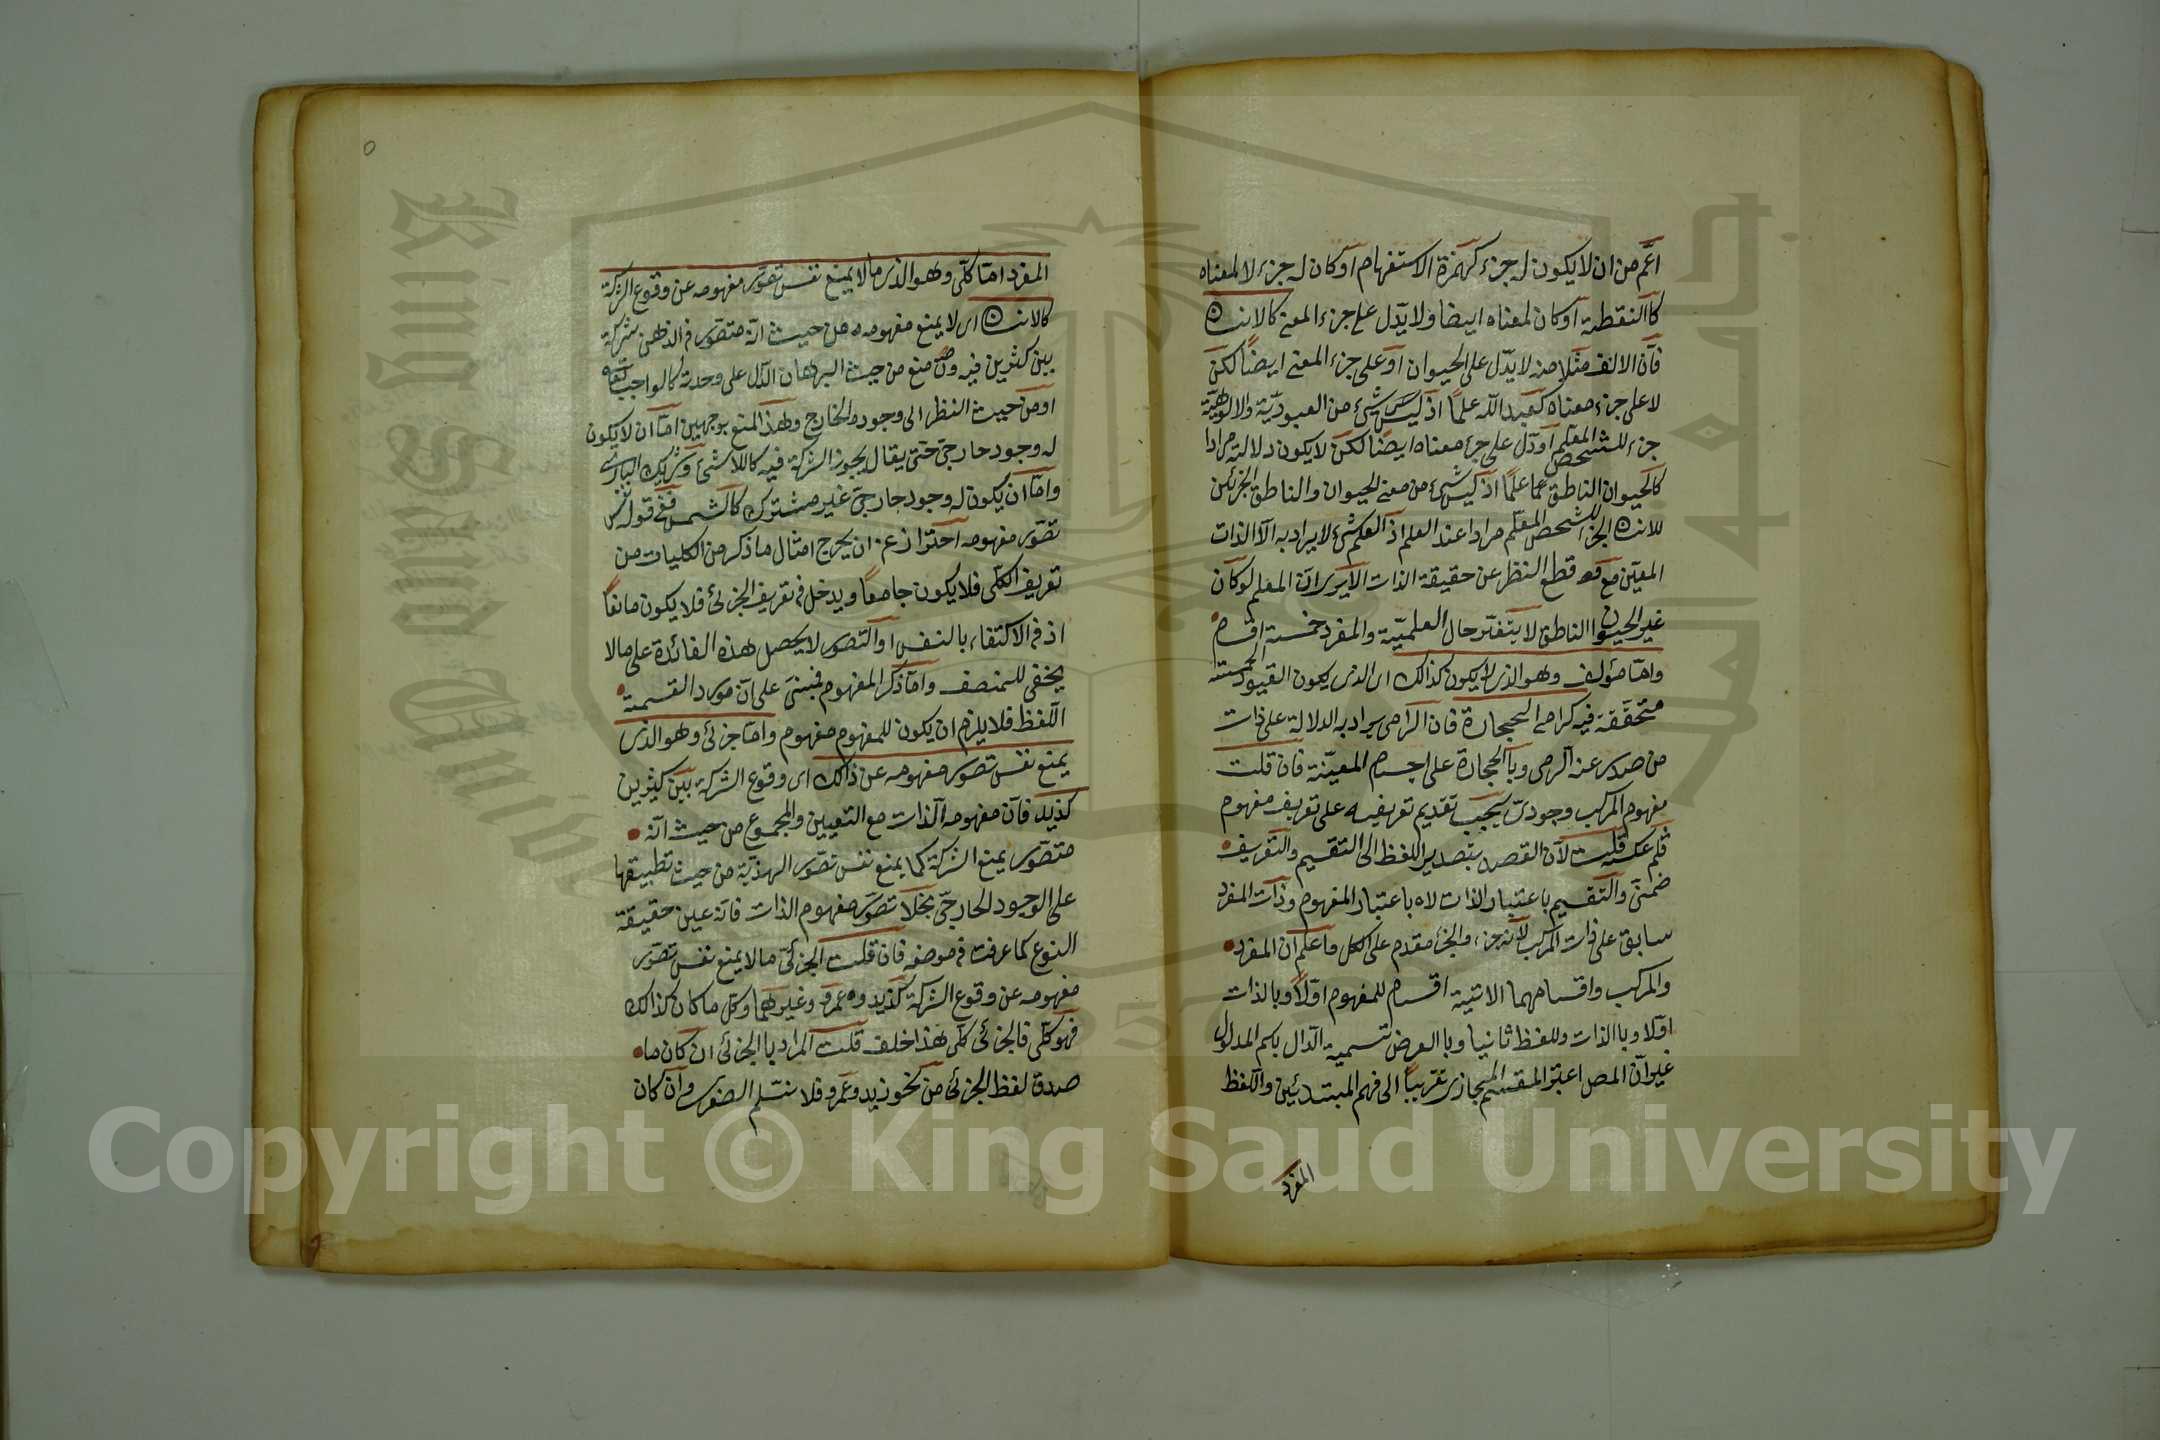 اعم من ان لا يكون له جزء كهمزة الاستفهام او كان له جزء لا لمعناه
كاالنقطة او كان لمعناه ايضا ولا يدل على جزء المعنى كالانسان
فان الالف مثلا منه لا يدل على الحيوان او على جزء المعنى ايضا لكن
لا على جزء معناه كعبد الله علما اذ ليس شئ من العبودية والالوهية
جزء للشخص المعلم او دل على جزء معناه ايضا لكن لا يكون دلالته مرادا
كالحيوان الناطق علما اذ ليس شئ من معنى الحيوان والناطق الجزئين
للانسان الجزء للشخص المعلم مرادا عند العلم اذ العلم شئ لا يراد به الا الذات
المعين مع قطع النظر عن حقيقة الذات الا يرى ان المعلم لو كان
غير الحيوان الناطق لا يتغير حال العلمية والمفرد خمسة اقسام
واما مؤلف وهو الذى لا يكون كذالك اى الذى يكون القيود الخمسة
متحققة فيه كرامى الحجارة فان الرامى يراد به الدلالة على ذات
من صدر عنه الرمى وباالحجارة على اجسام المعينة فان قلت
مفهوم المركب وجودى يجب تقديم تعريفه على تعريف مفهوم
فلم عكسه قلت لان القصد بتصدير اللفظ الى التقسيم والتعريف
ضمنى والتقسيم باعتبار الذات لا باعتبار المفهوم وذات المفرد
سابق على ذات المركب لانه جزء والجزء مقدم على الكل واعلم ان المفرد
والمركب واقسامهما الاتية اقسام للمفهوم اولا وبالذات
اولا وباالذات وللفظ ثانيا وباالعرض تسمية الدال باسم المدلول
غير ان المص اعتبر المقسم المجازى تقريبا الى فهم المبتدئين واللفظ
المفرد
٥
المفرد اما كلى وهو الذى مالا يمنع نفس تصور مفهومه عن وقوع الشركة
كالانسان اى لا يمنع مفهومه من حيث انه متصور فى الذهن شركة
بين كثيرين فيه وان منع من حيث البرهان الدال على وحدته كالواجب تعالى
او من حيث النظر الى وجوده الخارج وهذا المنع بوجهين اما ان لا يكون
له وجود خارجى حتى يقال يجوز الشركة فيه كاللاشئ وشريك البارى
واما ان يكون له وجود خارجى غير مشترك كالشمس ففى قوله نفس
تصور مفهومه احتراز عن ان يخرج امثال ما ذكر من الكليات من
تعريف الكلى فلا يكون جامعا ويدخل فى تعريف الجزئى فلا يكون مانعا
اذ فى الاكتفاء بالنفس او التصور لا يحصل هذه الفائدة على مالا
يخفى للمنصف واما ذكر المفهوم فمبنى على ان مورد القسمة
اللفظ فلا يلزم ان يكون للمفهوم مفهوم واما جزئى وهو الذى
يمنع نفس تصور مفهومه عن ذالك اى وقوع الشركة بين كثيرين
كذيد فان مفهومه الذات مع التعيين والمجموع من حيث انه
متصور يمنع الشركة كما يمنع نفس تصور الهذية من حيث تطبيقها
على الوجود الخارجى بخلاف تصور مفهوم الذات فانه عين حقيقة
النوع كما عرفت فى موضعه فان قلت الجزئى مالا يمنع نفس تصور
مفهومه عن وقوع الشركة كذيد وعمرو وغيرهما وكل ما كان كذالك
فهو كلى فالجزئى كلى هذا خلف قلت المراد باالجزئى ان كان ما
صدق لفظ الجزئى من نحو زيد وعمرو فلا نسلم الصغرى وان كان